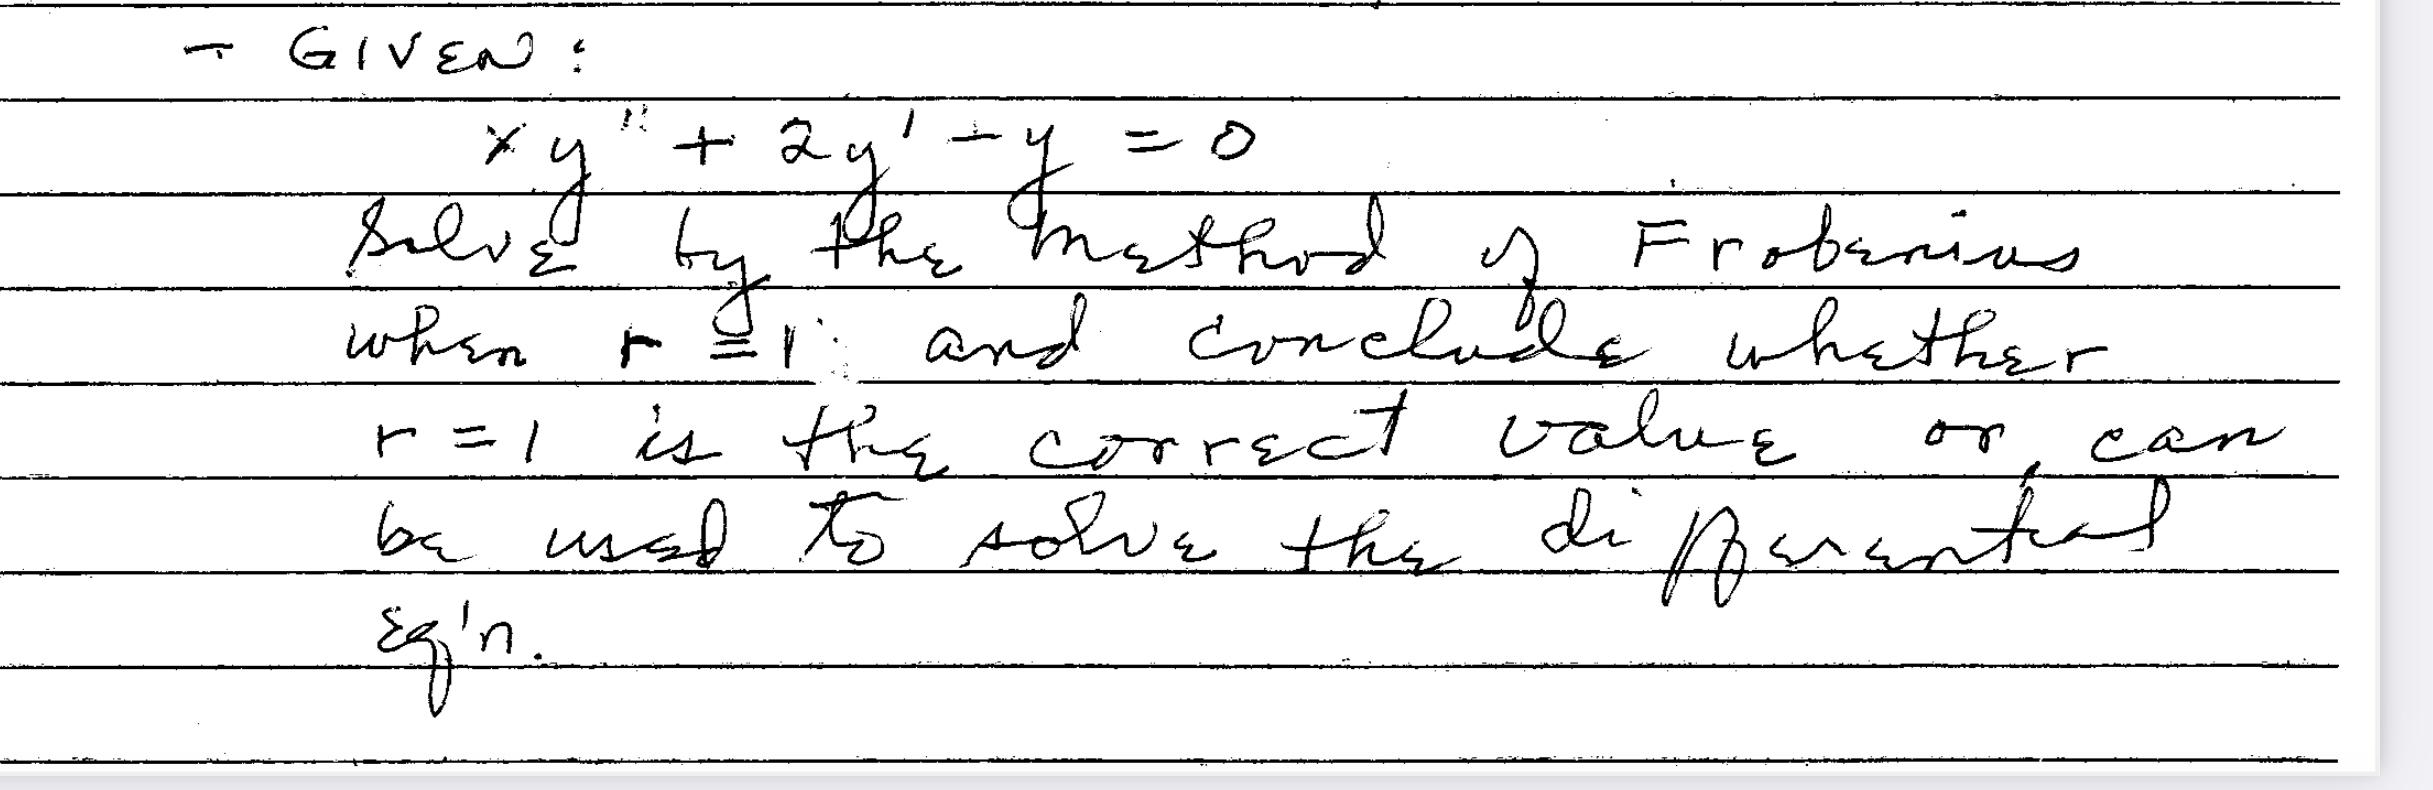 - GIVEN:
xy" + 2y' - y = 0
Solve by the method of Frobenius
when r = 1 and conclude whether
r = 1 is the correct value or can
be used to solve the differential
Eq'n.